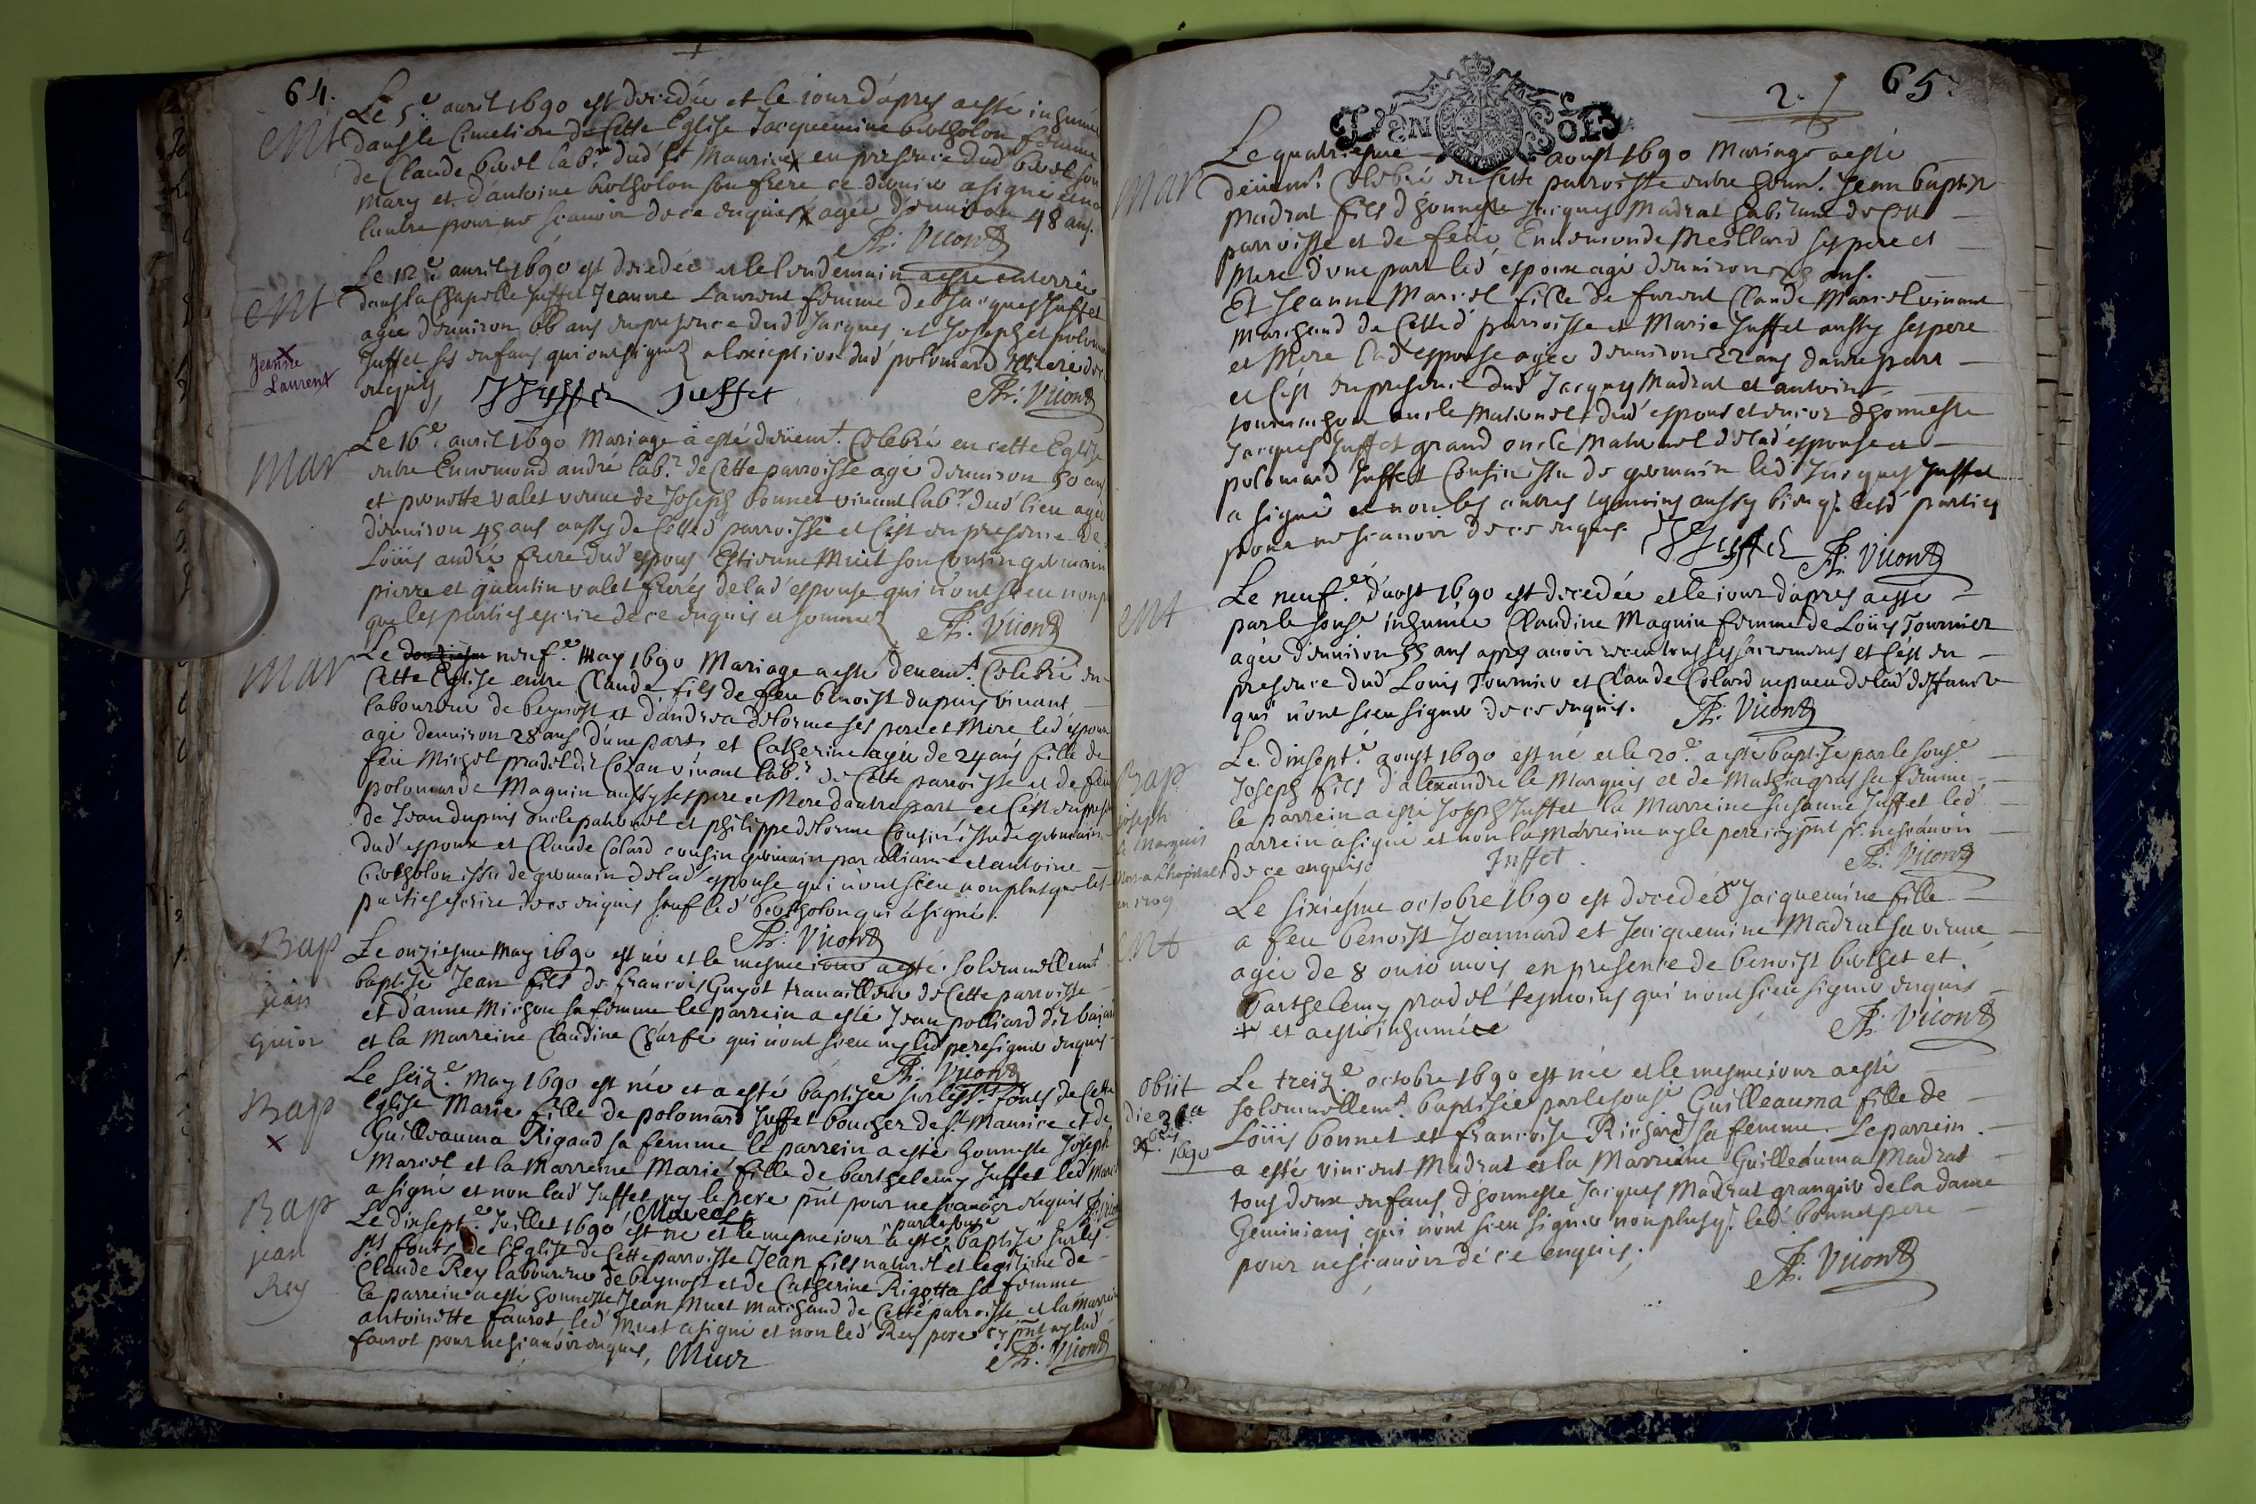 64.
Le 5.e auril 1690 est decedée et le iour d'apres a esté inhumée
Ent dans le Cimetiere de Cette Eglise Jacquemine bertholon femme
de Claude birel lab.r dud' St Maurice en presence dud' birel son
mary et d'antoine bertholon son frere ce dernier a signé et non
l'autre pour ne scauoir de ce enquis agée d'enuiron 48 ans.
Vicond
Le 12.e auril 1690 est decedée et le lendemain a esté enterrée
Ent dans la Chapelle Juffet Jeanne Laurent femme de Jacques Juffet
agée d'enuiron 66 ans en presence dud' Jacques et Joseph et polomard
Jeanne Laurent
Juffet ses enfans qui ont signez a l'exception dud' polomard de ce
enquis, Juffet Juffet Vicond
Mar Le 16.e auril 1690 Mariage a esté deüem.t Celebré en cette Eglise
entre Ennemond andré lab.r de Cette parroisse agé d'enuiron 50 ans
et pernette valet veuue de Joseph bonnet viuant lab.r dud' lieu agée
d'enuiron 45 ans aussy de Cetted' parroisse et C'est en presence de
Loüis andré frere dud' espoux Estienne Muet son Cousin germain
pierre et quentin valet freres de lad' espouse qui n'ont sceu non plus
que les parties escrire de ce enquis et sommez
Vicond
Mar Le neuf.e May 1690 Mariage a esté deüem.t Celebré en
Cette Eglise entre Claude fils de feu benoist dupuis viuant
laboureur de beynost et d'andrea delorme ses pere et Mere led' espoux
agé d'enuiron 28 ans d'une part, et Catherine agée de 24 ans fille de
feu Michel pradel dit Cozan viuant lab.r de Cette parroisse et de feue
polomarde Maguin aussy ses pere et Mere d'autre part et C'est en presence
de Jean dupuis oncle paternel et philippe delorme Cousin issu de germain
dud' espoux et Claude Colard cousin germain par alliance et antoine
bertholon issu de germain de lad' espouse qui n'ont sceu non plus que les
parties escrire de ce enquis sauf led' bertholon qui a signé.
Vicond
Bap Le onziesme May 1690 est né et le mesme iour a esté solemnellem.t
jean guiot
baptisé Jean fils de francois Guyot trauailleur de Cette parroisse
et d'anne Michon sa femme le parrein a esté Jean polliard dit
et la Marreine Claudine Charfe qui n'ont sceu ny led' pere signer enquis
Vicond
Bap Le seiz.e May 1690 est née et a esté baptisée sur les sts fonts de Cette
Eglise Marie fille de polomard Juffet boucher de St Maurice et de
Guilleauma Rigaud sa femme, le parrein a esté honneste Joseph
Marcel et la Marreine Marie fille de barthelemy Juffet led' Marcel
a signé et non lad' Juffet ny le pere pnt pour ne scauoir enquis
Marcel
Bap Le dixsept.e Juillet 1690 est né et le mesme iour a esté par le soubs.e baptisé sur les
jean Rey
sts fonts de l'Eglise de Cette parroisse Jean fils naturel et legitime de
Claude Rey laboureur de beynost et de Catherine Rigotta sa femme
le parrein a esté honneste Jean Muet marchand de Cette parroisse et la Marreine
antoinette fauret, led' Muet a signé et non led' Rey pere cy pnt ny lad'
fauret pour ne scauoir enquis, Muet Vicond
UN SOL
2. 65.
Le quatriesme aoust 1690 Mariage a esté
Mar deüem.t Celebré en Cette parroisse entre honn.e Jean baptiste
Madrat fils d'honneste Jacques Madrat habitant de Cette
parroisse et de feüe Ennemonde Meillard ses pere et
Mere d'une part led' espoux agé d'enuiron ans.
Et Jeanne Marcel fille de furent Claude Marcel viuant
Marchand de Cetted' parroisse et Marie Juffet aussy ses pere
et Mere lad' espouse agée d'enuiron 22 ans d'autre part
et C'est en presence dud' Jacques Madrat et antoine
oncle Maternel dud' espoux et encor d'honneste
Jacques Juffet grand oncle Maternel de lad' espouse et
polomard Juffet Cousin issu de germain led' Jacques Juffet
a signé et non les autres tesmoins aussy bien q. lesd' parties
pour ne scauoir de ce enquis. Juffet Vicond
Le neuf.e d'aoust 1690 est decedée et le iour d'apres a esté
Ent par le soubs.e inhumée Claudine Maguin femme de Loüis Tournier
agée d'enuiron 55 ans apres auoir receu tous ses sacremens et C'est en
presence dud' Louis Tournier et Claude Colard nepueu de lad' deffunte
qui n'ont sceu signer de ce enquis. Vicond
Bap Le dixsept.e aoust 1690 est né et le 20.e a esté baptisé par le soubs.e
joseph le Marquis
Joseph fils d'alexandre le Marquis et de Mathia gras sa femme
le parrein a esté Joseph Juffet la Marreine susanne Juffet led'
parrein a signé et non la Marreine ny le pere cy pnt pr. ne scauoir
mort a l'hopital
de ce enquis Juffet. Vicond
Le sixiesme octobre 1690 est decedée Jacquemine fille
Ent a feu benoist Joannard et Jacquemine Madrat sa veuue,
agée de 8 ou 10 mois en presence de benoist berthet et
barthelemy pradel tesmoins qui n'ont sceu signer enquis
+ et a esté inhumée Vicond
obiit die 31a 8bris 1690
Le treiz.e octobre 1690 est née et le mesme iour a esté
solemnellem.t baptisée par le soubs.e Guilleauma fille de
Loüis bonnet et francoise Richard sa femme. Le parrein
a esté vincent Madrat et la Marreine Guilleauma Madrat
tous deux enfans d'honneste Jacques Madrat granger de la dame
Geminiani qui n'ont sceu signer non plus q. led' bonnet pere
pour ne scauoir de ce enquis. Vicond